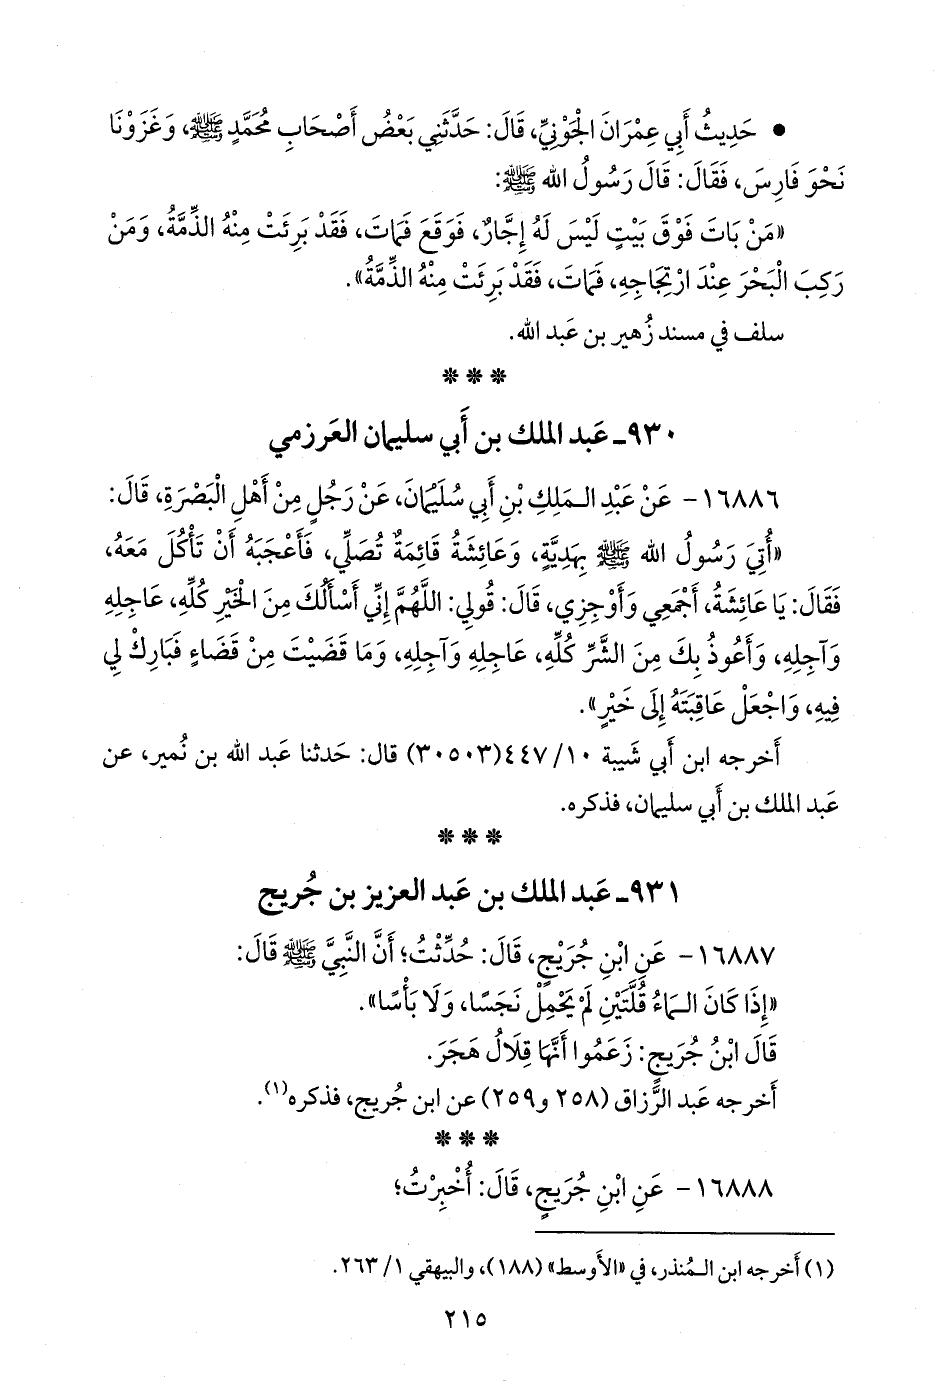 • حَدِيثُ أَبِي عِمْرَانَ الْجَوْنِيِّ، قَالَ: حَدَّثَنِي بَعْضُ أَصْحَابِ مُحَمَّدٍ ﷺ، وَغَزَوْنَا
نَحْوَ فَارِسَ، فَقَالَ: قَالَ رَسُولُ الله ﷺ:
«مَنْ بَاتَ فَوْقَ بَيْتٍ لَيْسَ لَهُ إِجَّارٌ، فَوَقَعَ فَمَاتَ، فَقَدْ بَرِئَتْ مِنْهُ الذِّمَّةُ، وَمَنْ
رَكِبَ الْبَحْرَ عِنْدَ ارْتِجَاجِهِ، فَمَاتَ، فَقَدْ بَرِئَتْ مِنْهُ الذِّمَّةُ».
سلف في مسند زُهير بن عَبد الله.
* * *
٩٣٠ـ عَبد الملك بن أَبي سليمان العَرزمي
١٦٨٨٦ - عَنْ عَبْدِ الـمَلِكِ بْنِ أَبِي سُلَيْمَانَ، عَنْ رَجُلٍ مِنْ أَهْلِ الْبَصْرَةِ، قَالَ:
«أُتِيَ رَسُولُ الله ﷺ بِهَدِيَّةٍ، وَعَائِشَةُ قَائِمَةٌ تُصَلِّي، فَأَعْجَبَهُ أَنْ تَأْكُلَ مَعَهُ،
فَقَالَ: يَا عَائِشَةُ، أَجْمِعِي وَأَوْجِزِي، قَالَ: قُولِي: اللَّهُمَّ إِنِّي أَسْأَلُكَ مِنَ الْخَيْرِ كُلِّهِ، عَاجِلِهِ
وَآجِلِهِ، وَأَعُوذُ بِكَ مِنَ الشَّرِّ كُلِّهِ، عَاجِلِهِ وَآجِلِهِ، وَمَا قَضَيْتَ مِنْ قَضَاءٍ فَبَارِكْ لِي
فِيهِ، وَاجْعَلْ عَاقِبَتَهُ إِلَى خَيْرٍ».
أَخرجه ابن أَبي شَيبة ١٠/ ٤٤٧(٣٠٥٠٣) قال: حَدثنا عَبد الله بن نُمير، عن
عَبد الملك بن أَبي سليمان، فذكره.
* * *
٩٣١ـ عَبد الملك بن عَبد العزيز بن جُريج
١٦٨٨٧ - عَنِ ابْنِ جُرَيْجٍ، قَالَ: حُدِّثْتُ؛ أَنَّ النَّبِيَّ ﷺ قَالَ:
«إِذَا كَانَ الـمَاءُ قُلَّتَيْنِ لَمْ يَحْمِلْ نَجَسًا، وَلَا بَأْسًا».
قَالَ ابْنُ جُرَيجٍ: زَعَمُوا أَنَّهَا قِلَالُ هَجَرَ.
أَخرجه عَبد الرَّزاق (٢٥٨ و٢٥٩) عن ابن جُريج، فذكره(١).
* * *
١٦٨٨٨ - عَنِ ابْنِ جُرَيجٍ، قَالَ: أُخْبِرْتُ؛
(١) أَخرجه ابن الـمُنذر، في «الأَوسط» (١٨٨)، والبيهقي ١/ ٢٦٣.
٢١٥